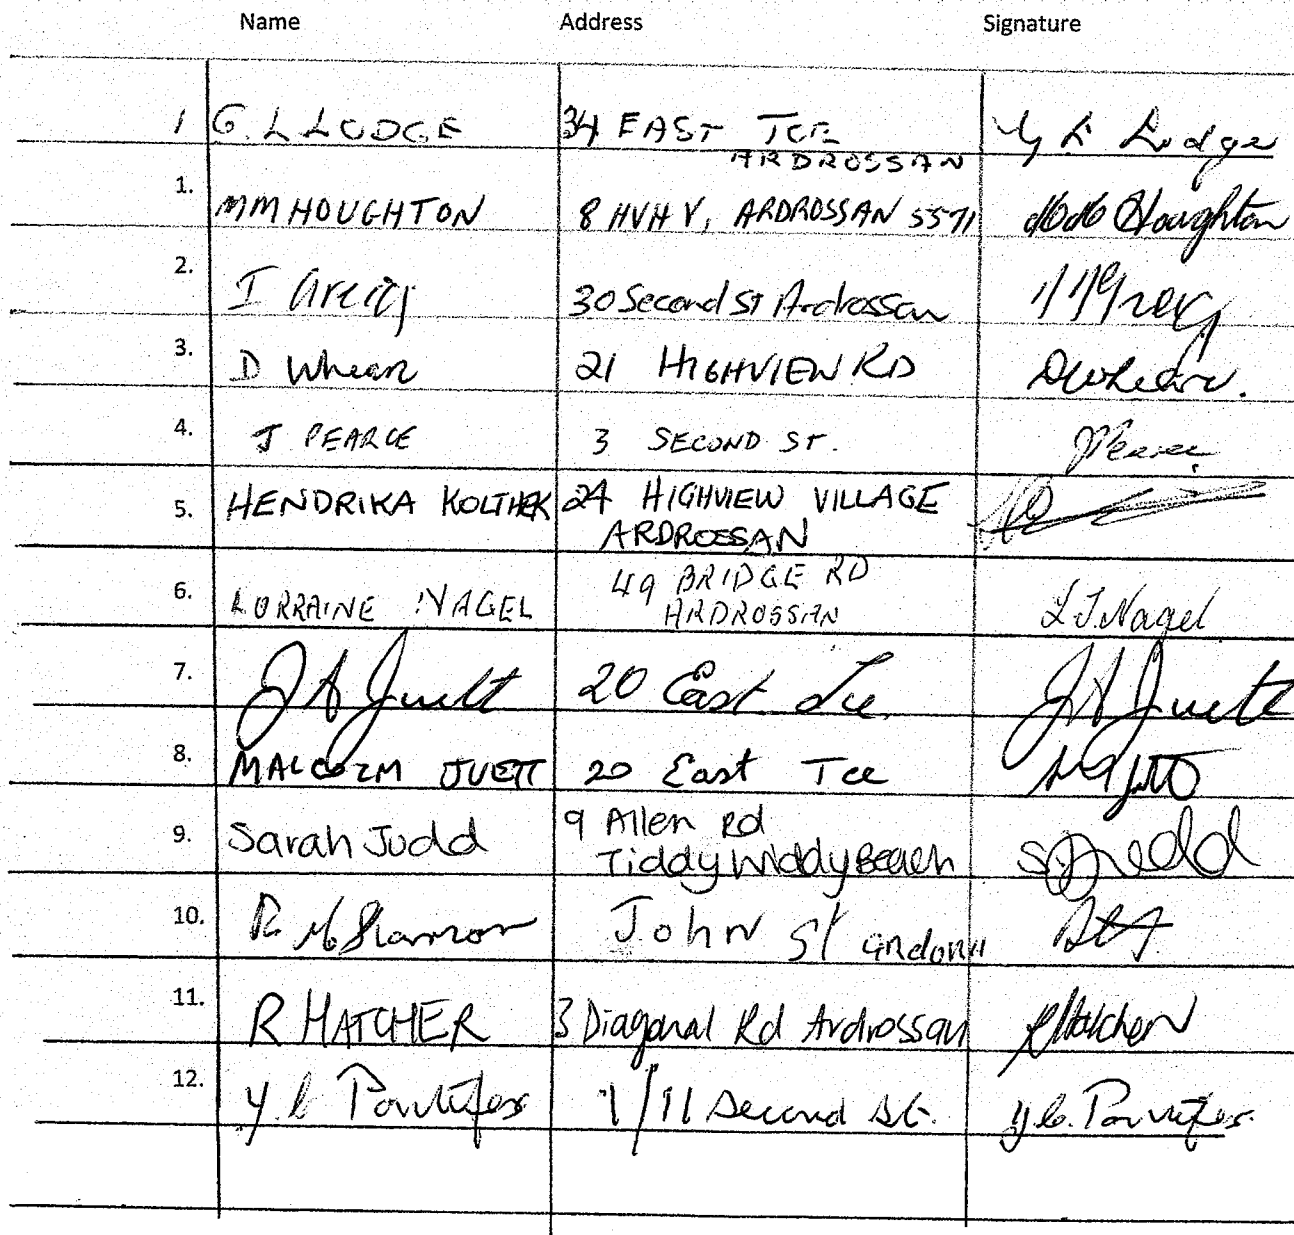 Name Address Signature
1 G. L LODGE 34 EAST TCE G L Lodge
ARDROSSAN
1. MM HOUGHTON 8 HVHV, ARDROSSAN 5571 Houghton
2. I Greig 30 Second St Ardrossan Greig
3. D Whean 21 HIGHVIEW RD
4. J PEARCE 3 SECOND ST. J Pearce
5. HENDRIKA KOLTHEK 24 HIGHVIEW VILLAGE
ARDROSSAN
6. LORRAINE NAGEL 49 BRIDGE RD L J. Nagel
ARDROSSAN
7. J A Juett 20 East Tce J A Juett
8. MALCOLM JUETT 20 East Tce
9. Sarah Judd 9 Allen Rd S Judd
Tiddy Widdy Beach
10. R Shannon John St
11. R HATCHER 3 Diagonal Rd Ardrossan R Hatcher
12. Y. C Pontifex 1/11 Second St. Y. C. Pontifex